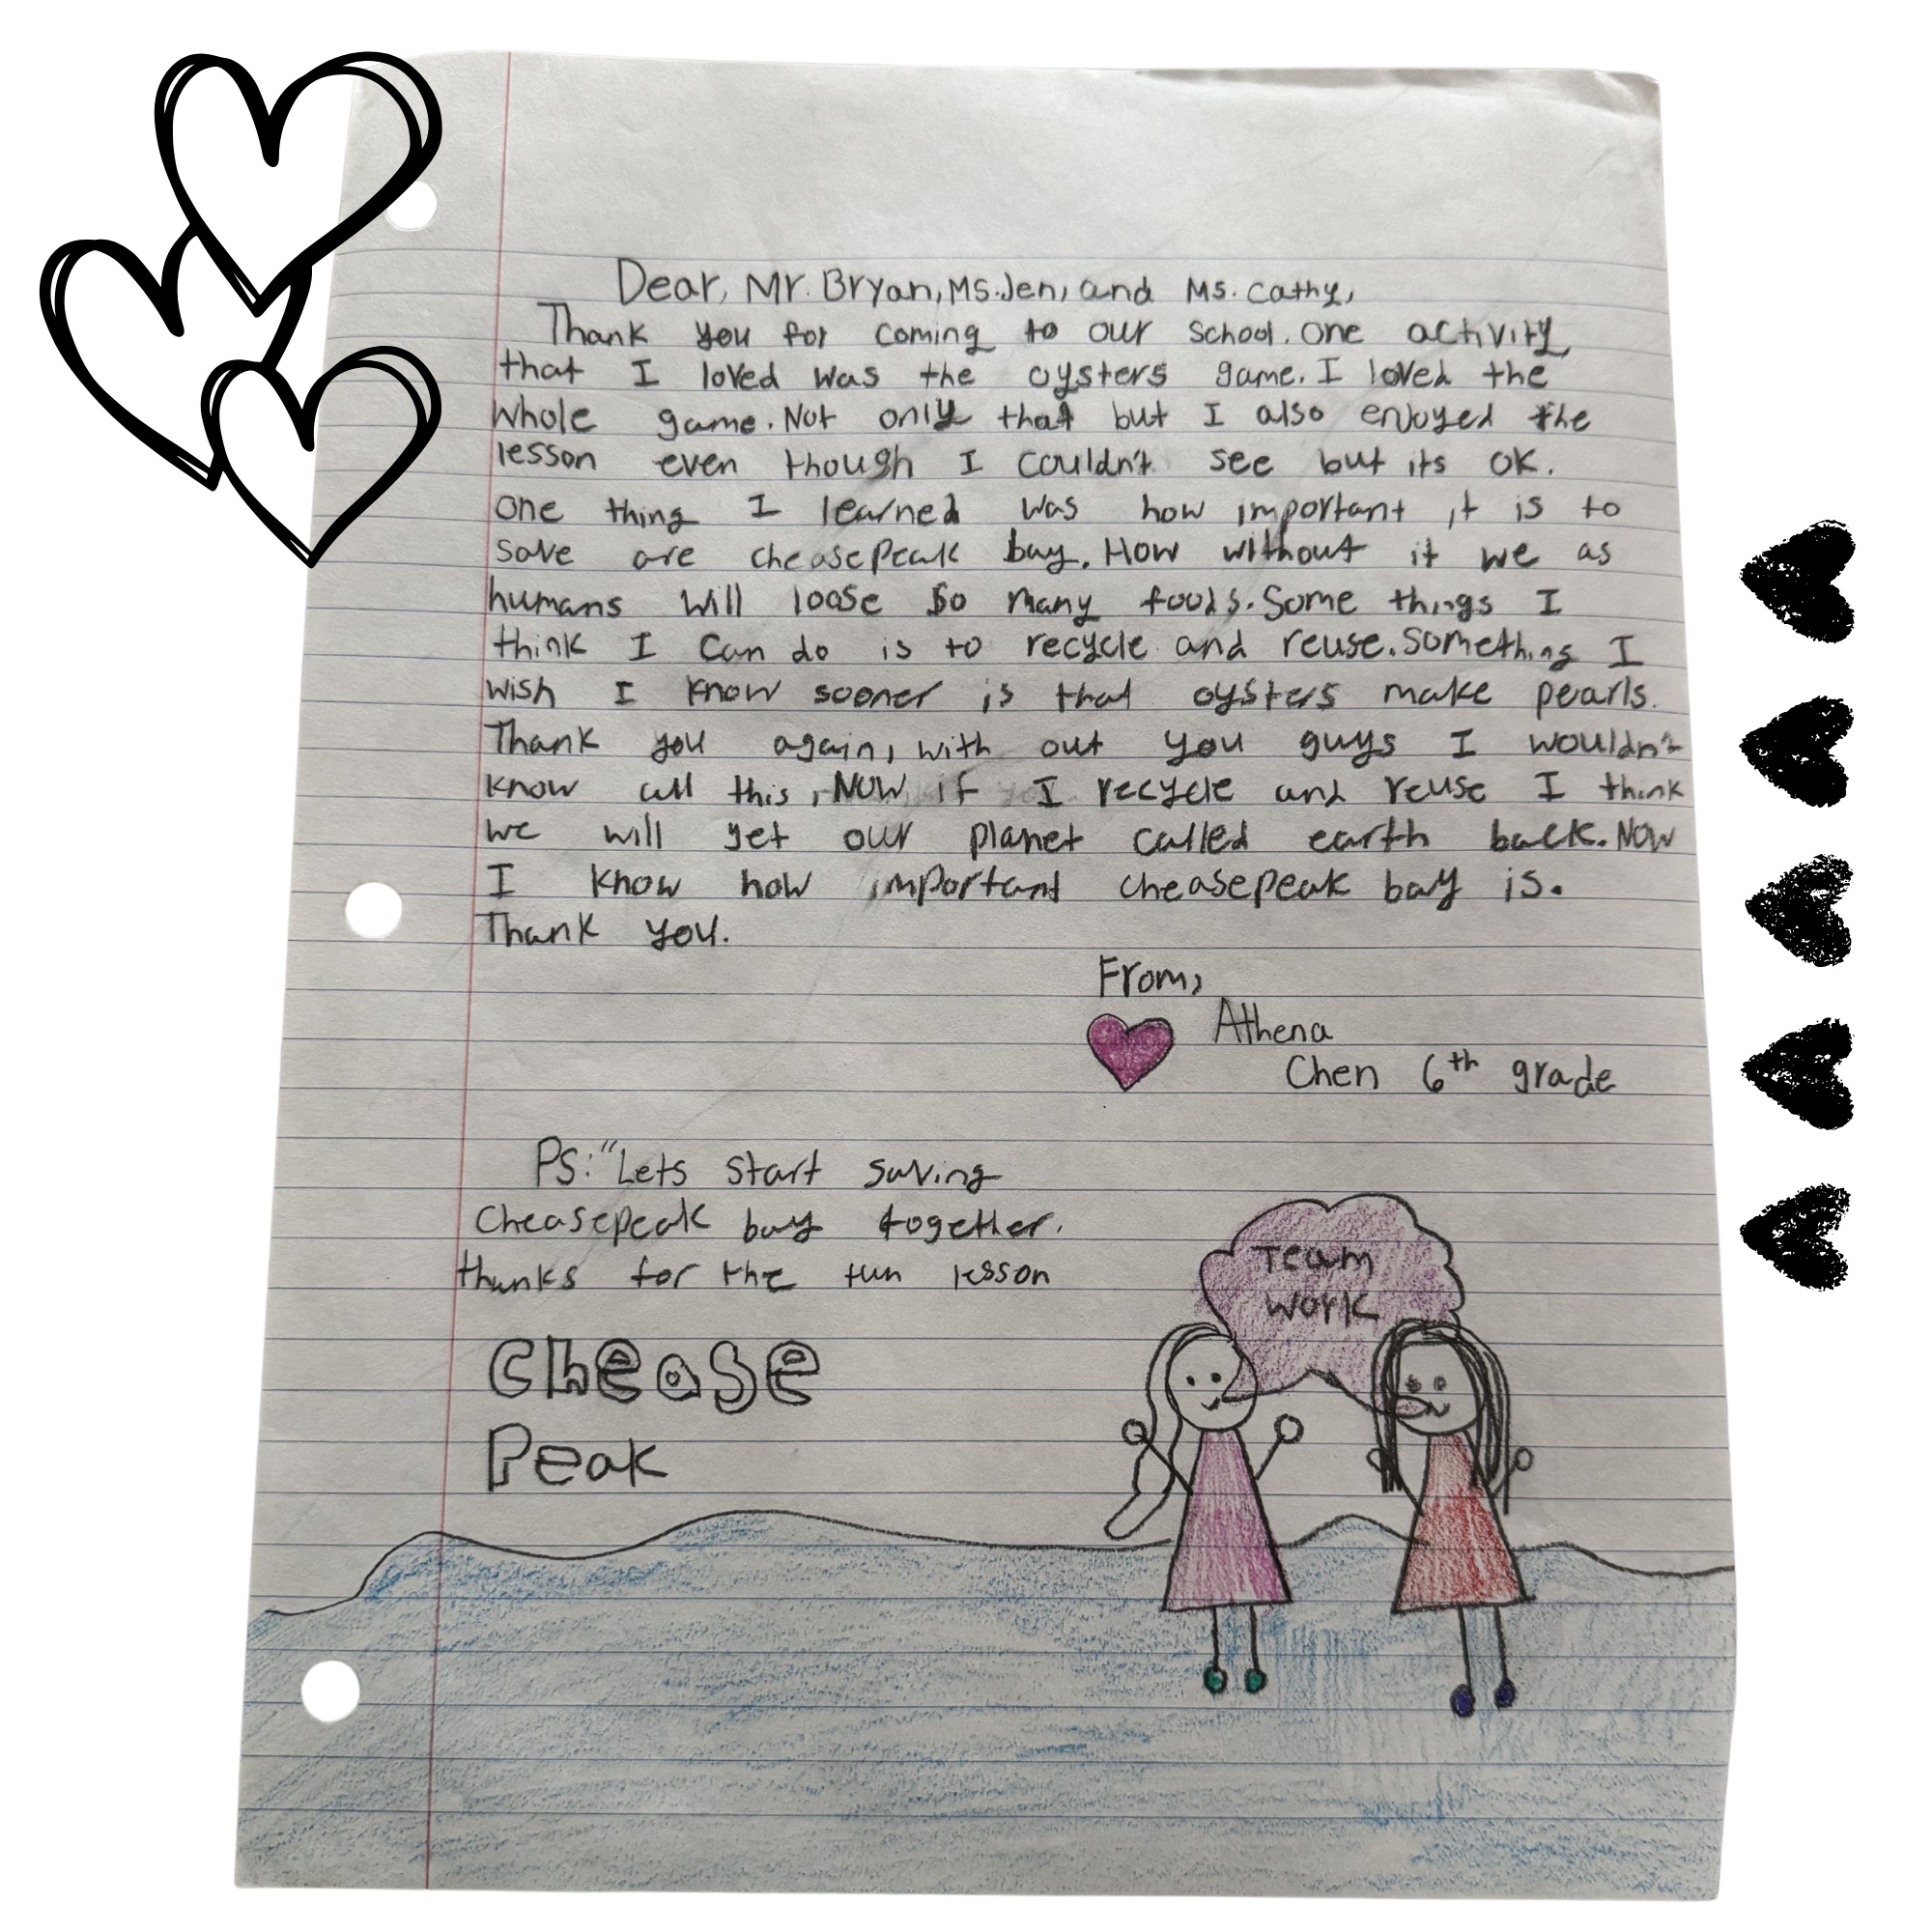 Dear, Mr. Bryan, Ms. Jen, and Ms. Cathy,
Thank you for coming to our school. One activity,
that I loved was the oysters game. I loved the
whole game. Not only that but I also enjoyed the
lesson even though I couldn't see but its ok.
One thing I learned was how important it is to
save are cheasepeak bay. How without it we as
humans will loose so many foods. Some things I
think I can do is to recycle and reuse. Something I
wish I know sooner is that oysters make pearls.
Thank you again, with out you guys I wouldn't
know all this, Now if I recycle and reuse I think
we will get our planet called earth back. Now
I know how important cheasepeak bay is.
Thank you.
From,
Athena
Chen 6th grade
Ps: "Lets start saving
Cheasepeak bay together.
thanks for the fun lesson
Team
Work
Chease
Peak